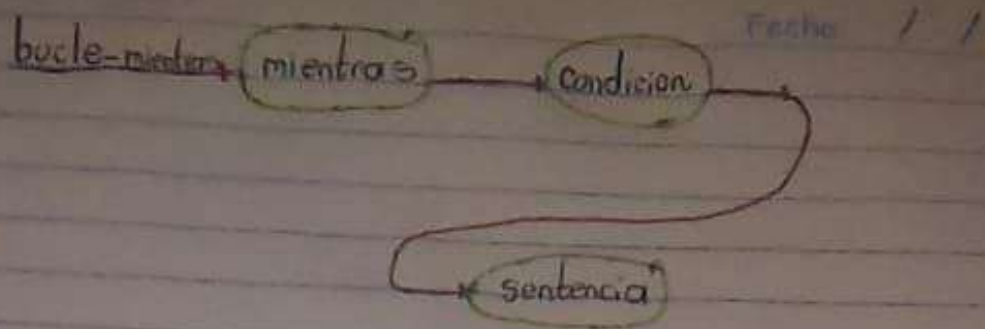 Fecha / /
bucle-mientras mientras condicion
sentencia